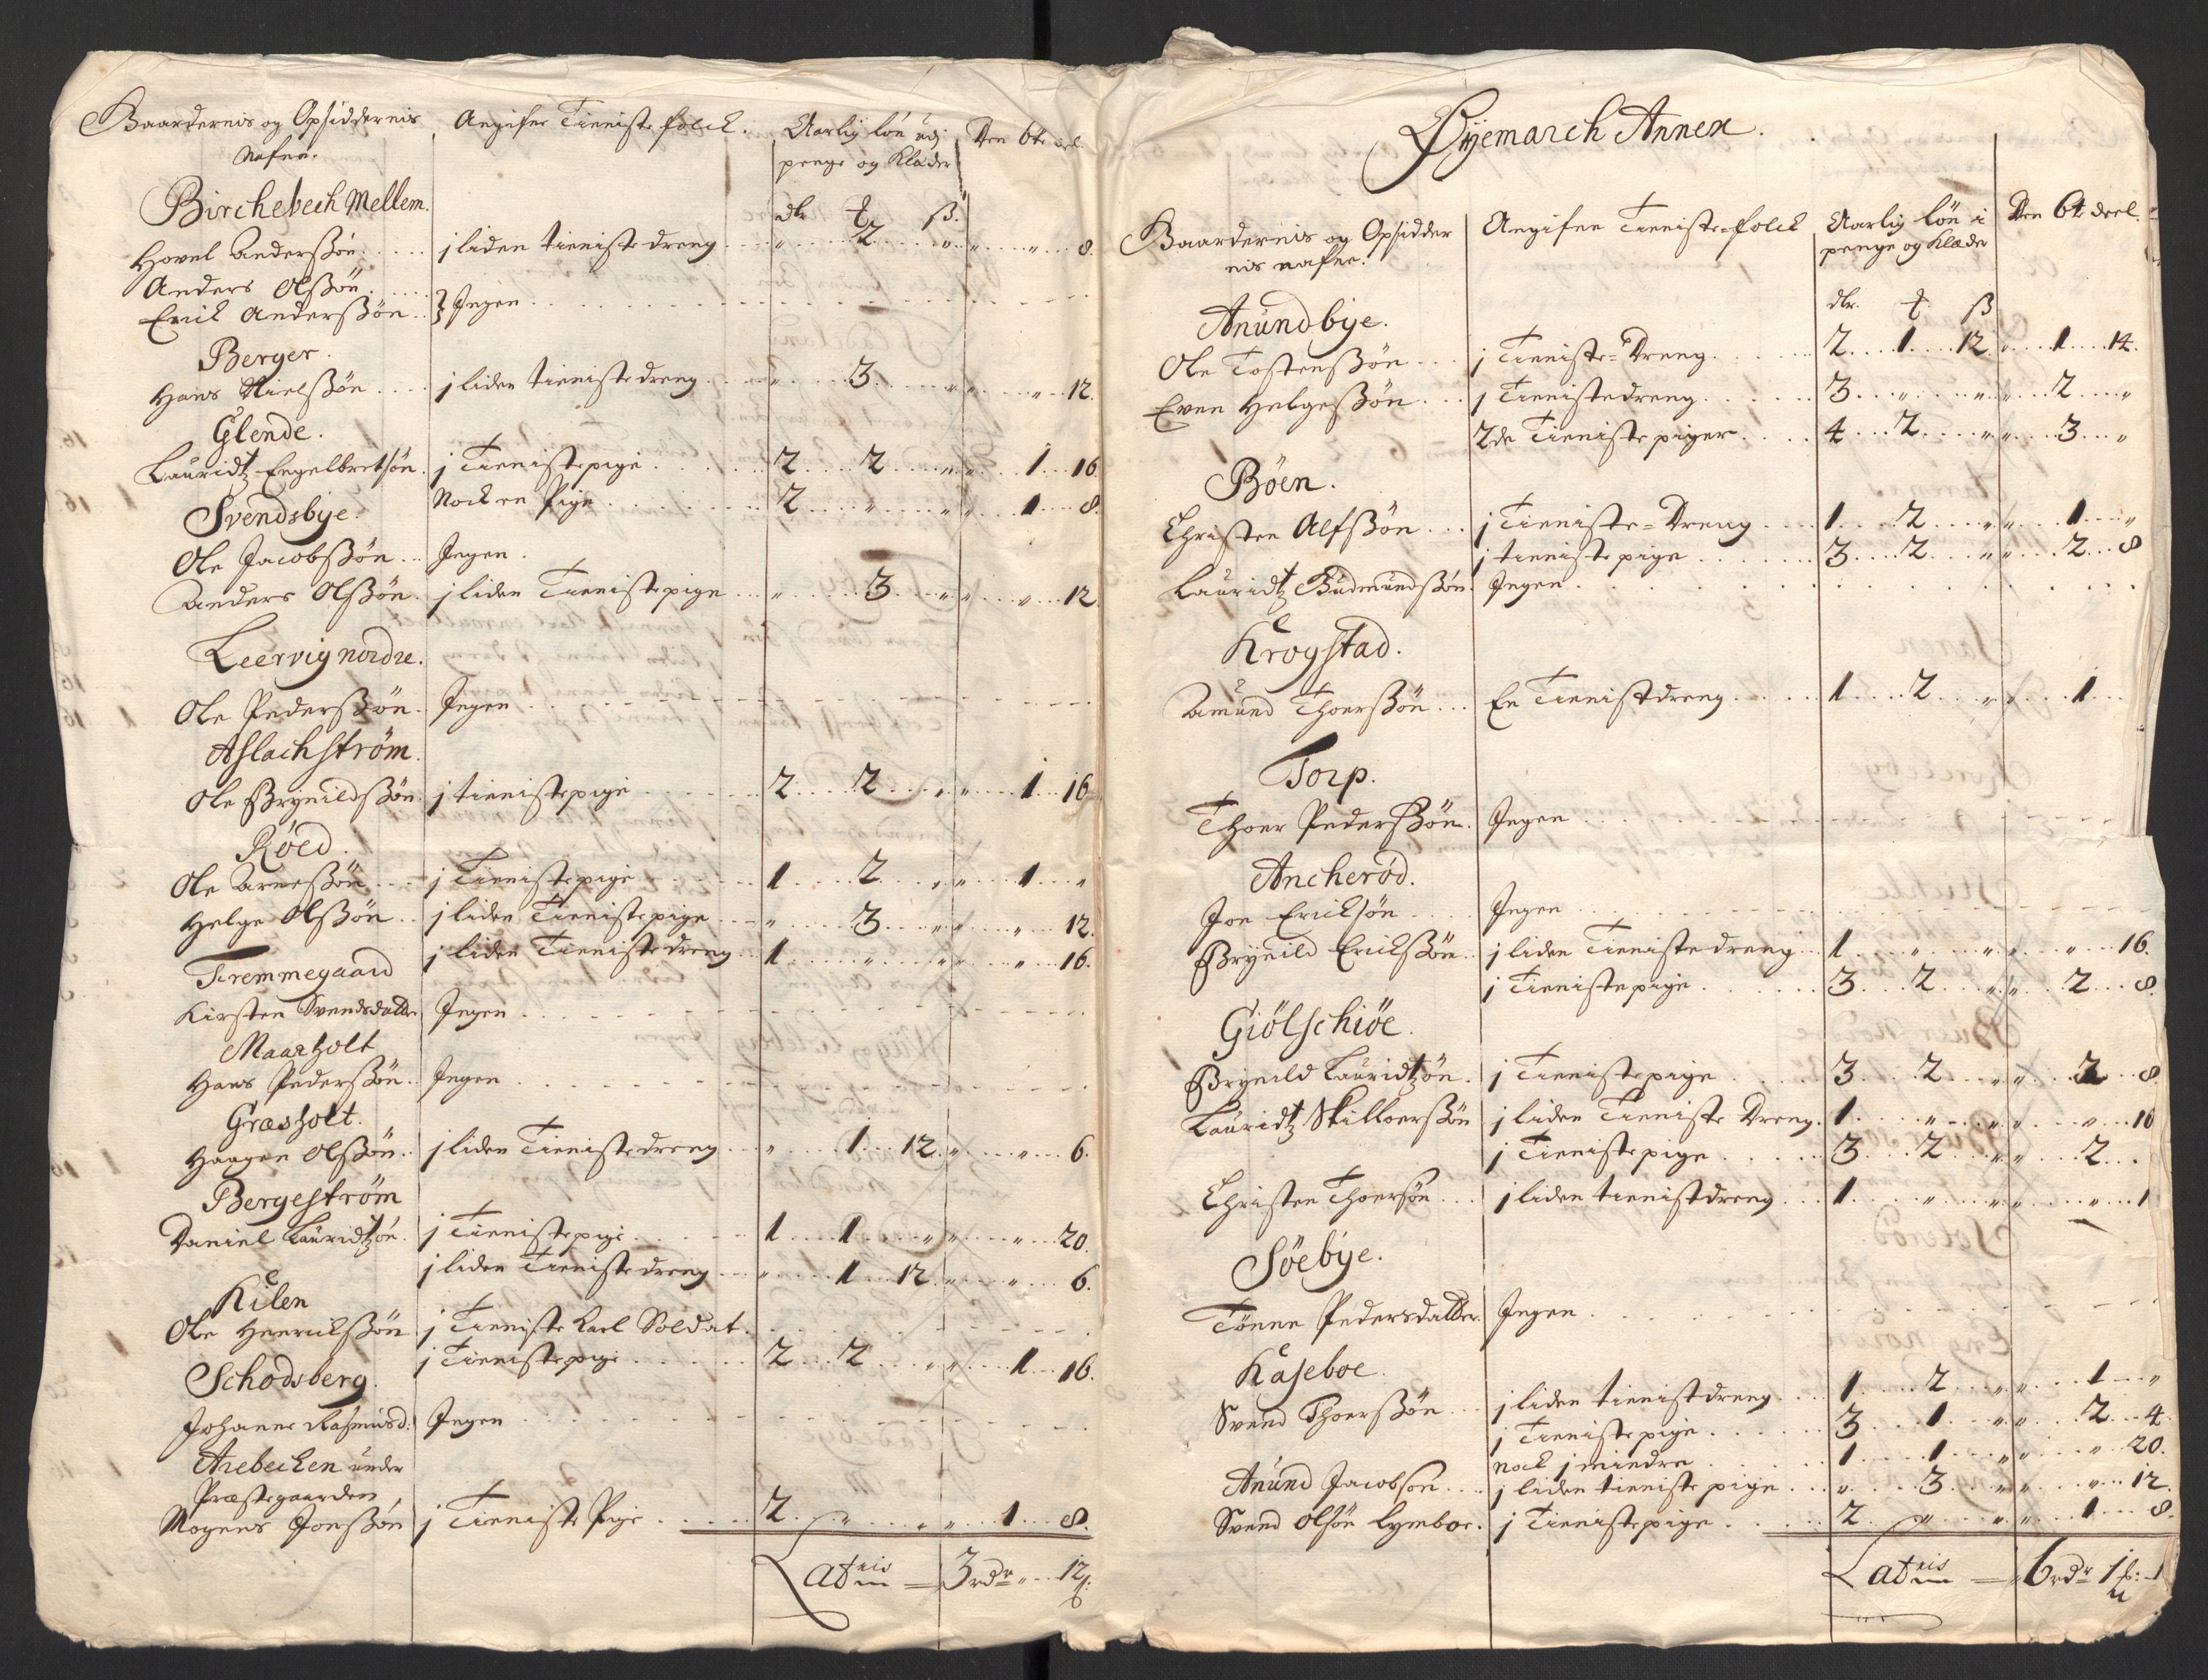 Gaardernis og Opsiddernis Angifne Tieniste folck. Aarlig løn udj Den 6te deel
Nafne. penge og Klæder
Birchebech Mellem. dlr ß.
Hovel Anderssøn j liden tienistedreng " 2 " " " 8.
Anders Olssøn
Erick Anderssøn } Ingen
Berger.
Hans Nielssøn j liden tienistedreng " 3 " " " 12.
Glende.
Lauridtz Engelbretsøn. j Tienistepige 2 2 " " 1 16
Nock en Pige 2 " " " 1 8.
Svendsbye.
Ole Jacobssøn Ingen.
Anders Olssøn. j liden Tienistepige " 3 " " " 12.
Leervig nordre.
Ole Pederssøn. Ingen
Aslachstrøm.
Ole Brynildssøn j tienistepige 2 2 " " 1 16
Røed.
Ole Arnessøn j Tienistepige 1 2 " " 1 "
Helge Olssøn j liden Tienistepige " 3 " " " 12.
j liden Tienistedreng 1 " " " " 16.
Tremmegaard
Kirsten Svendsdatter Ingen
Maarholt
Hans Pederssøn. Ingen
Græsholt.
Haagen Olssøn. j liden Tienistedreng " 1 12. " " 6.
Bergestrøm
Daniel Lauridtzøn. j Tienistepige 1 1 " " " 20.
j liden Tienistedreng " 1 12. " " 6.
Kilen
Ole Henrickssøn j Tieniste Karl Soldat.
j Tienistepige 2 2 " " 1 16.
Schodsberg.
Johanne Rasmusd. Ingen
Arebecken under
Præstegaarden,
Mogens Jonssøn j Tieniste Pige 2 " " " 1 8.
Latris 3 rdr " 12 ß:
Øyemarch Annex.
Gaardernis og Opsidder Angifne Tieniste-folck Aarlig løn i Den 6te deel.
nis nafne. penge og Klæder
dlr. ß
Anundbye.
Ole Tostenssøn j Tieniste-Dreng 2 1 12. " 1 14.
Even Helgessøn j Tienistedreng 3 " " " 2 "
2de Tienistepiger 4 2 " " 3 "
Böen.
Christen Alfssøn j Tieniste-Dreng 1 2 " " 1 "
j tienistepige 3 2 " " 2 8
Lauridtz Gudmundssøn. Ingen
Krogstad.
Amund Thoerssøn En Tienistdreng 1 2 " " 1
Torp.
Thoer Pederssøn. Ingen
Ancherød.
Jon Ericksøn Ingen
Brynild Erickssøn j liden Tienistedreng 1 " " " " 16.
j Tienistepige 3 2 " " 2 8.
Giølschiøe.
Brynild Lauridtzøn. j Tienistepige 3 2 " " 2 8
Lauridtz Skilloerssøn j liden Tieniste Dreng. 1 " " " " 16
j Tienistepige 3 2 " " 2
Christen Thoersøn j liden tienistdreng 1 " " " " 1
Söebye.
Tönne Pedersdatter. Ingen
Kaseboe.
Svend Thoerssøn j liden tienistdreng 1 2 " " 1 "
j Tienistepige 3 1 " " 2 4.
nock j mindre 1 1 " " " 20.
Anund Jacobsøn j liden tieniste pige " 3 " " " 12.
Svend Olsøn Lymboe. j Tienistepige 2 " " " 1 8.
Latris 6 rdr 1